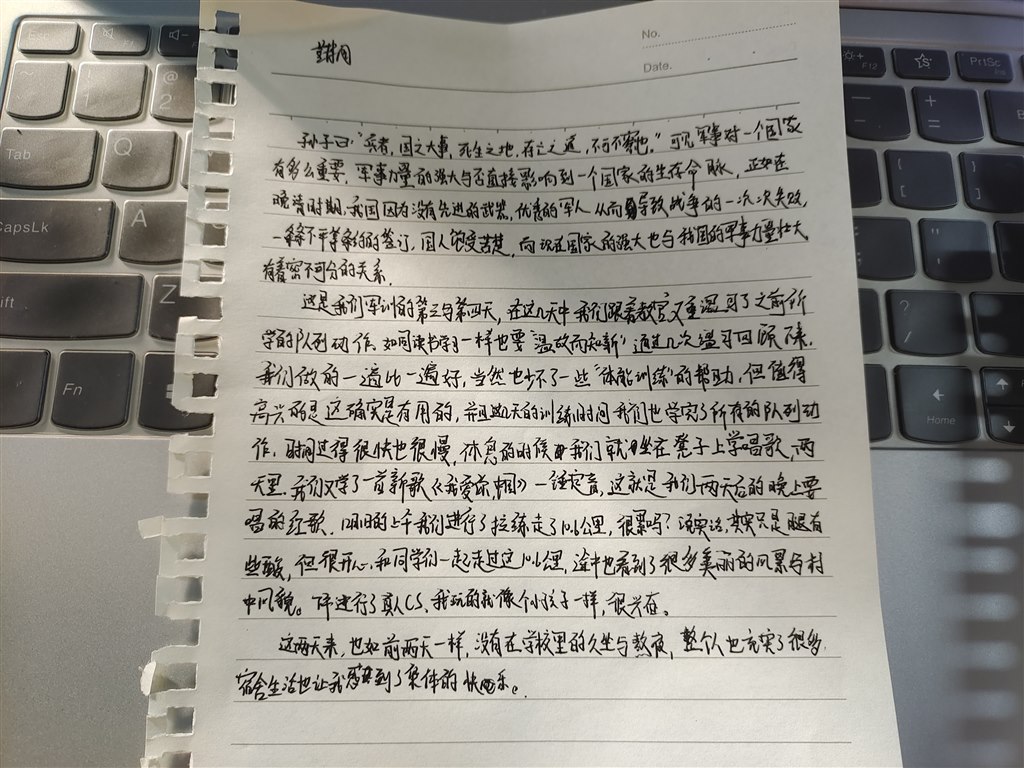 Esc
Tab
Q
CapsLk
A
Z
Fn
F12
PrtSc
Home
No.
Date.
孙子曰"兵者,国之大事,死生之地,存亡之道,不可不察也。"可见军事对一个国家
有多么重要,军事力量的强大与否直接影响到一个国家的生存命脉,正如在
晚清时期,我国因为没有先进的武器,优秀的军人从而导致战争的一次次失败,
一条条不平等条约的签订,国人饱受苦楚,而现在国家的强大也与我国的军事力量壮大
有着密不可分的关系.
这是我们军训的第三与第四天,在这几天中我们跟着教官又重温习了之前所
学的队列动作,如同读书学习一样也要"温故而知新"通过几次温习回顾下来,
我们做的一遍比一遍好,当然也少不了一些"体能训练"的帮助,但值得
高兴的是这确实是有用的,并且这天的训练时间我们也学完了所有的队列动
作,时间过得很快也很慢,休息的时候我们就坐在凳子上学唱歌,两
天里,我们又学了一首新歌《我爱你,中国》一锤定音,这就是我们两天后的晚上要
唱的红歌.明日的上午我们进行了拉练走了10.6公里,很累吗?说实话,其实只是腿有
些酸,但很开心,和同学们一起走过这10.6公里,途中也看到了很多美丽的风景与村
中风貌。下午进行了真人CS,我玩的我像个小孩子一样,很兴奋。
这两天来,也如前两天一样,没有在学校里的久坐与熬夜,整个人也充实了很多,
宿舍生活也让我感受到了集体的快乐。